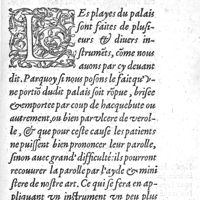 LEs playes du palais
sont faites de plusi-
eurs & divers in-
strumẽts, cõme nous
avons par cy devant
dit. Parquoy si nous posons le fait que
ne portiõ dudit palais soit rõpue, brisee
& emportee par coup de hacquebute ou
autrement, ou bien par vlcere de verol-
le, & que pour ceste cause les patients
ne puissent bien prononcer leur parolle,
sinon avec grand' difficulté: ils pourront
recouurer la parolle par l'ayde & mini
stere de nostre art. Ce qui se fera en ap-
pliquant vn instrument vn peu plus